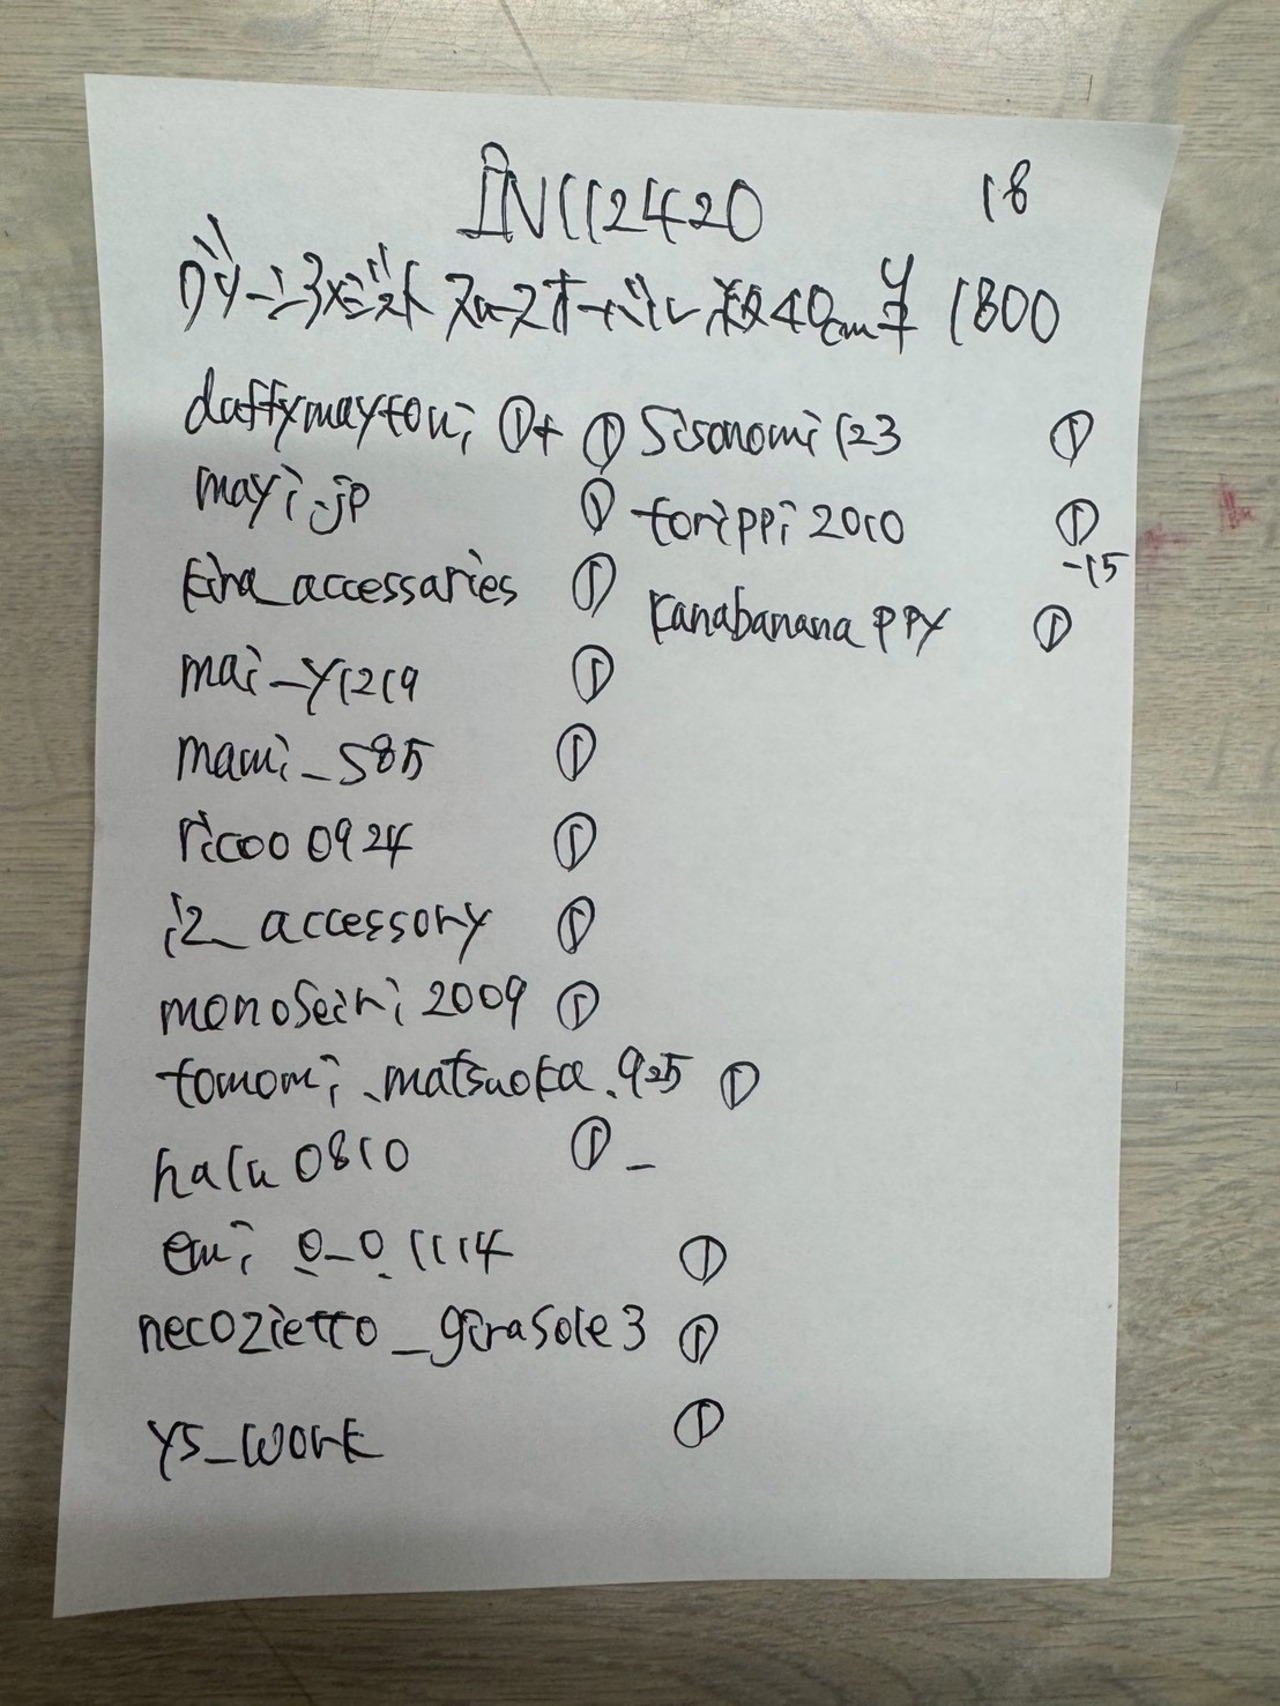 IN112420 18
グリーンアメジスト スムースオーバル 約40cm半 ¥1800
daffymaytoui ①+①
mayi.jp ①
kira_accessaries ①
mai_y1219 ①
maui_s85 ①
ricoo0924 ①
i2_accessory ①
monoseiri2009 ①
tomomi.matsuoka.925 ①
halu0810 ①-
emi 0_0 1114 ①
necozietto_girasole3 ①
ys_work ①
Sisonomi123 ①
torippi2010 ①
-15
kanabananappy ①